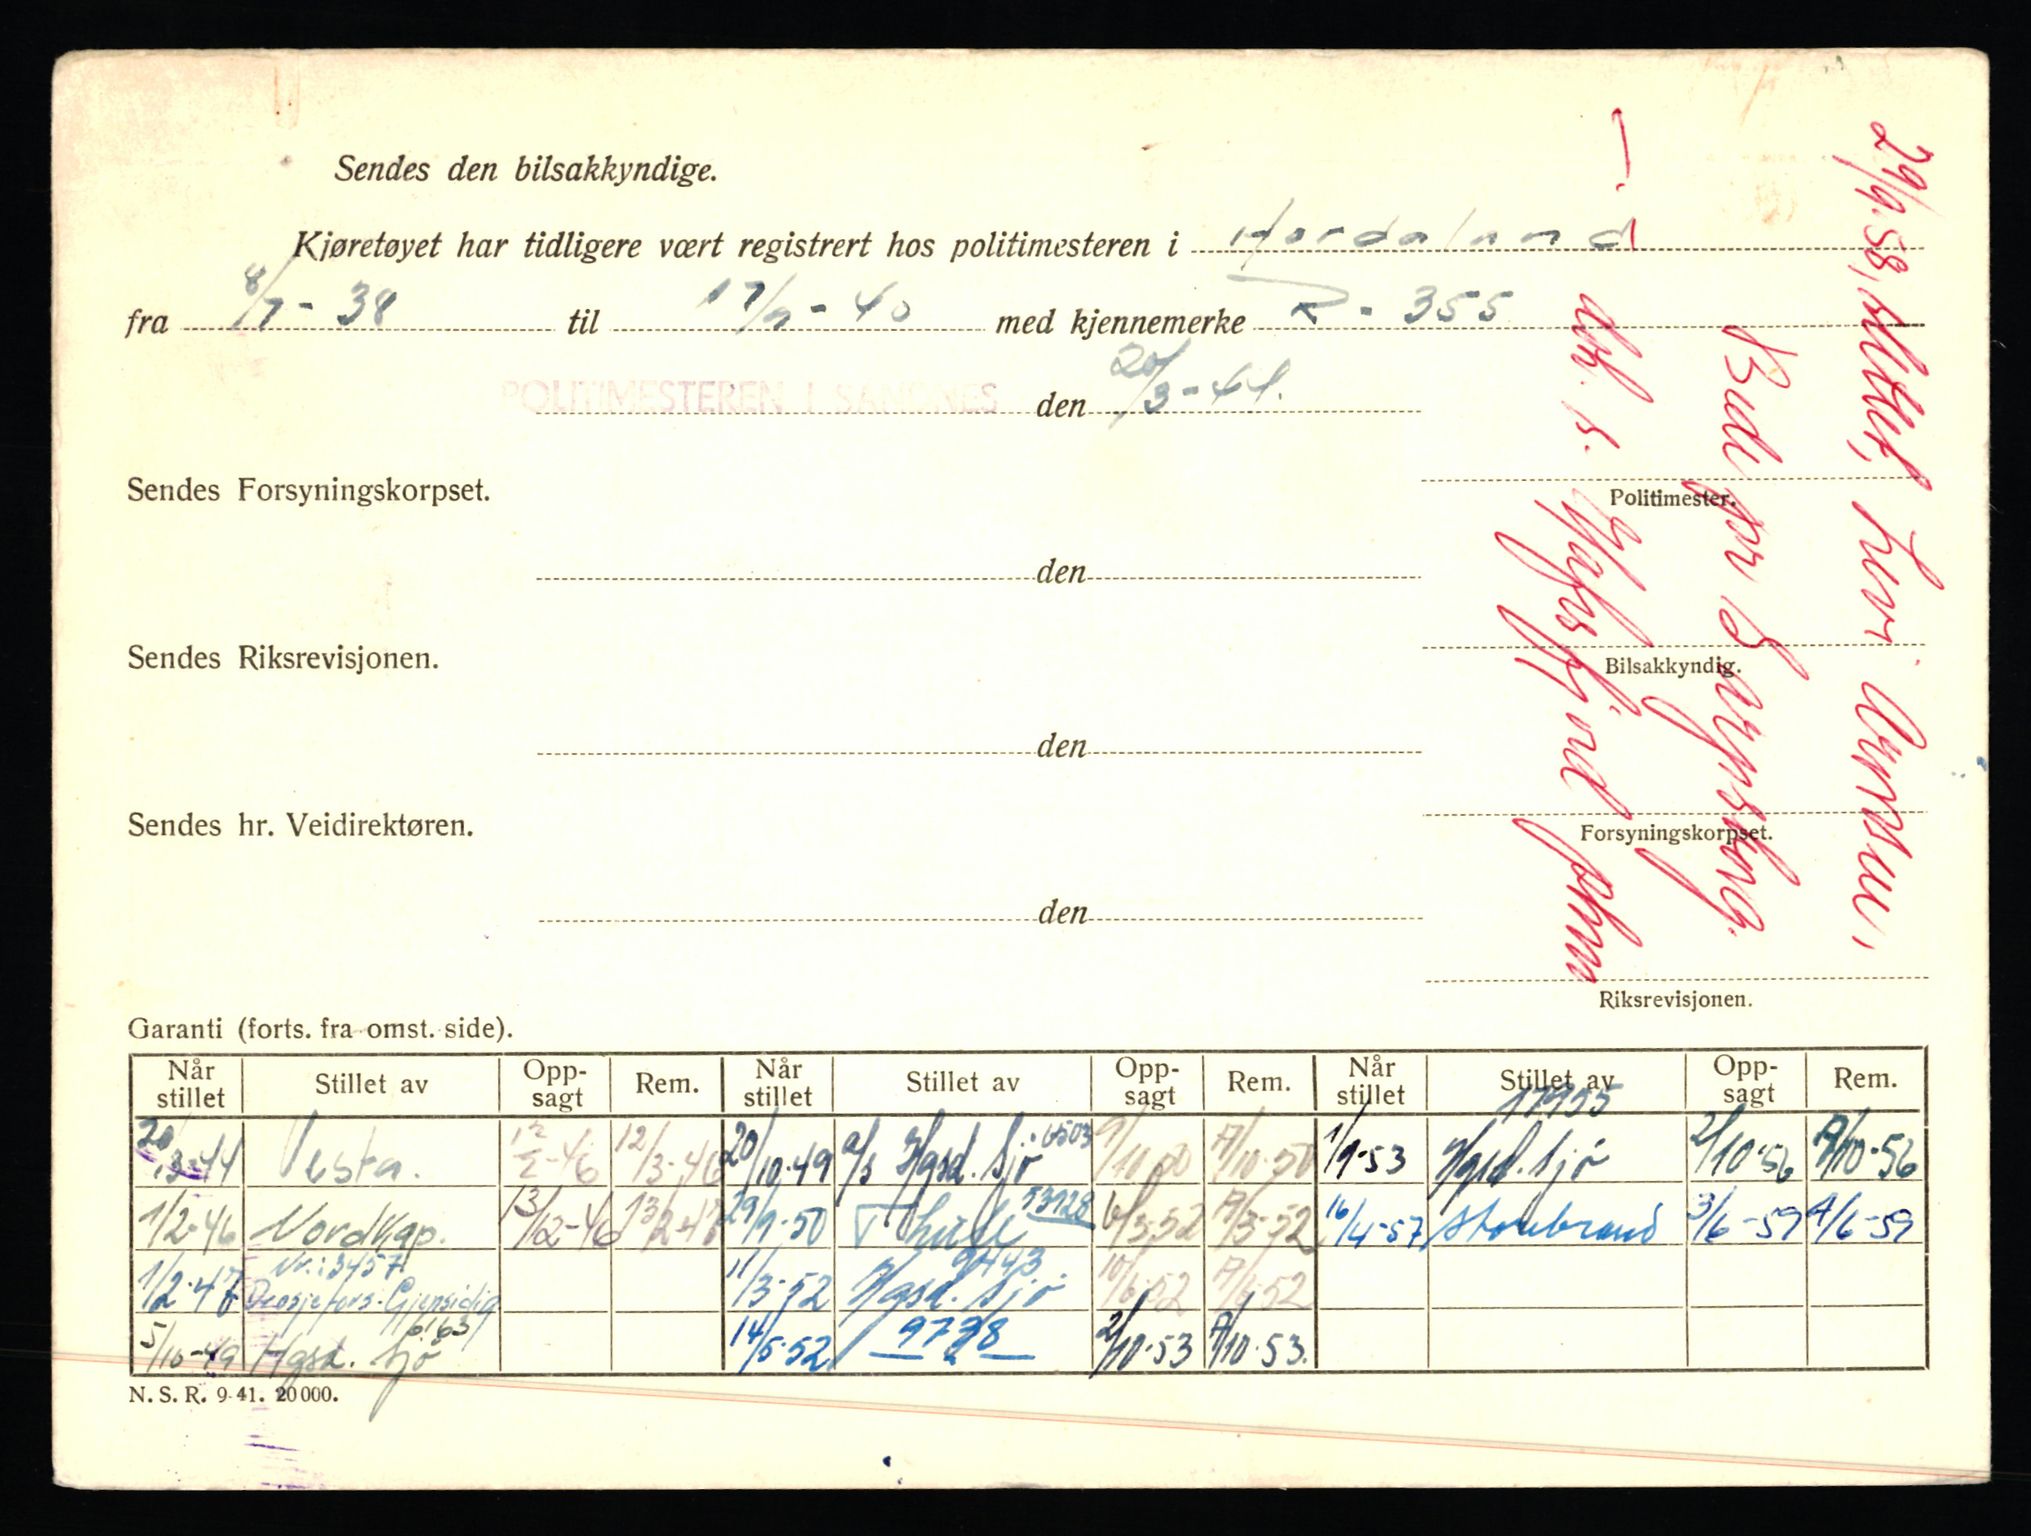 Sendes den bilsakkyndige.
Kjøretøyet har tidligere vært registrert hos politimesteren i Hordaland
fra 8/7-38 til 17/9-40 med kjennemerke R-355
POLITIMESTEREN I SANDNES den 20/3-44.
Politimester.
Sendes Forsyningskorpset.
den
Bilsakkyndig.
Sendes Riksrevisjonen.
den
Forsyningskorpset.
Sendes hr. Veidirektøren.
den
Riksrevisjonen.
29/9.58,
Garanti (forts. fra omst. side).
Når stillet Stillet av Opp-sagt Rem. Når stillet Stillet av Opp-sagt Rem. Når stillet Stillet av Opp-sagt Rem.
20/3-44 Vesta. 12/2-46 12/3-46 20/10-49 a/s Hgsd. Sjø 6503 A/10-50 1/9-53 17955 Hgsd. Sjø 2/10-56 A/10-56
1/2-46 Nordkap. 13/12-46 29/9-50 Thule 53928 6/3-52 A/3-52 16/4-57 Storebrand 3/6-59 A/6-59
1/2-47 Nr.: 3457 Gjensidig 11/3-52 Hgsd. Sjø 10/6-52 A/6-52
5/10-49 Hgsd. Sjø 6163 14/5-52 2/10-53 A/10-53.
N. S. R. 9-41. 20 000.